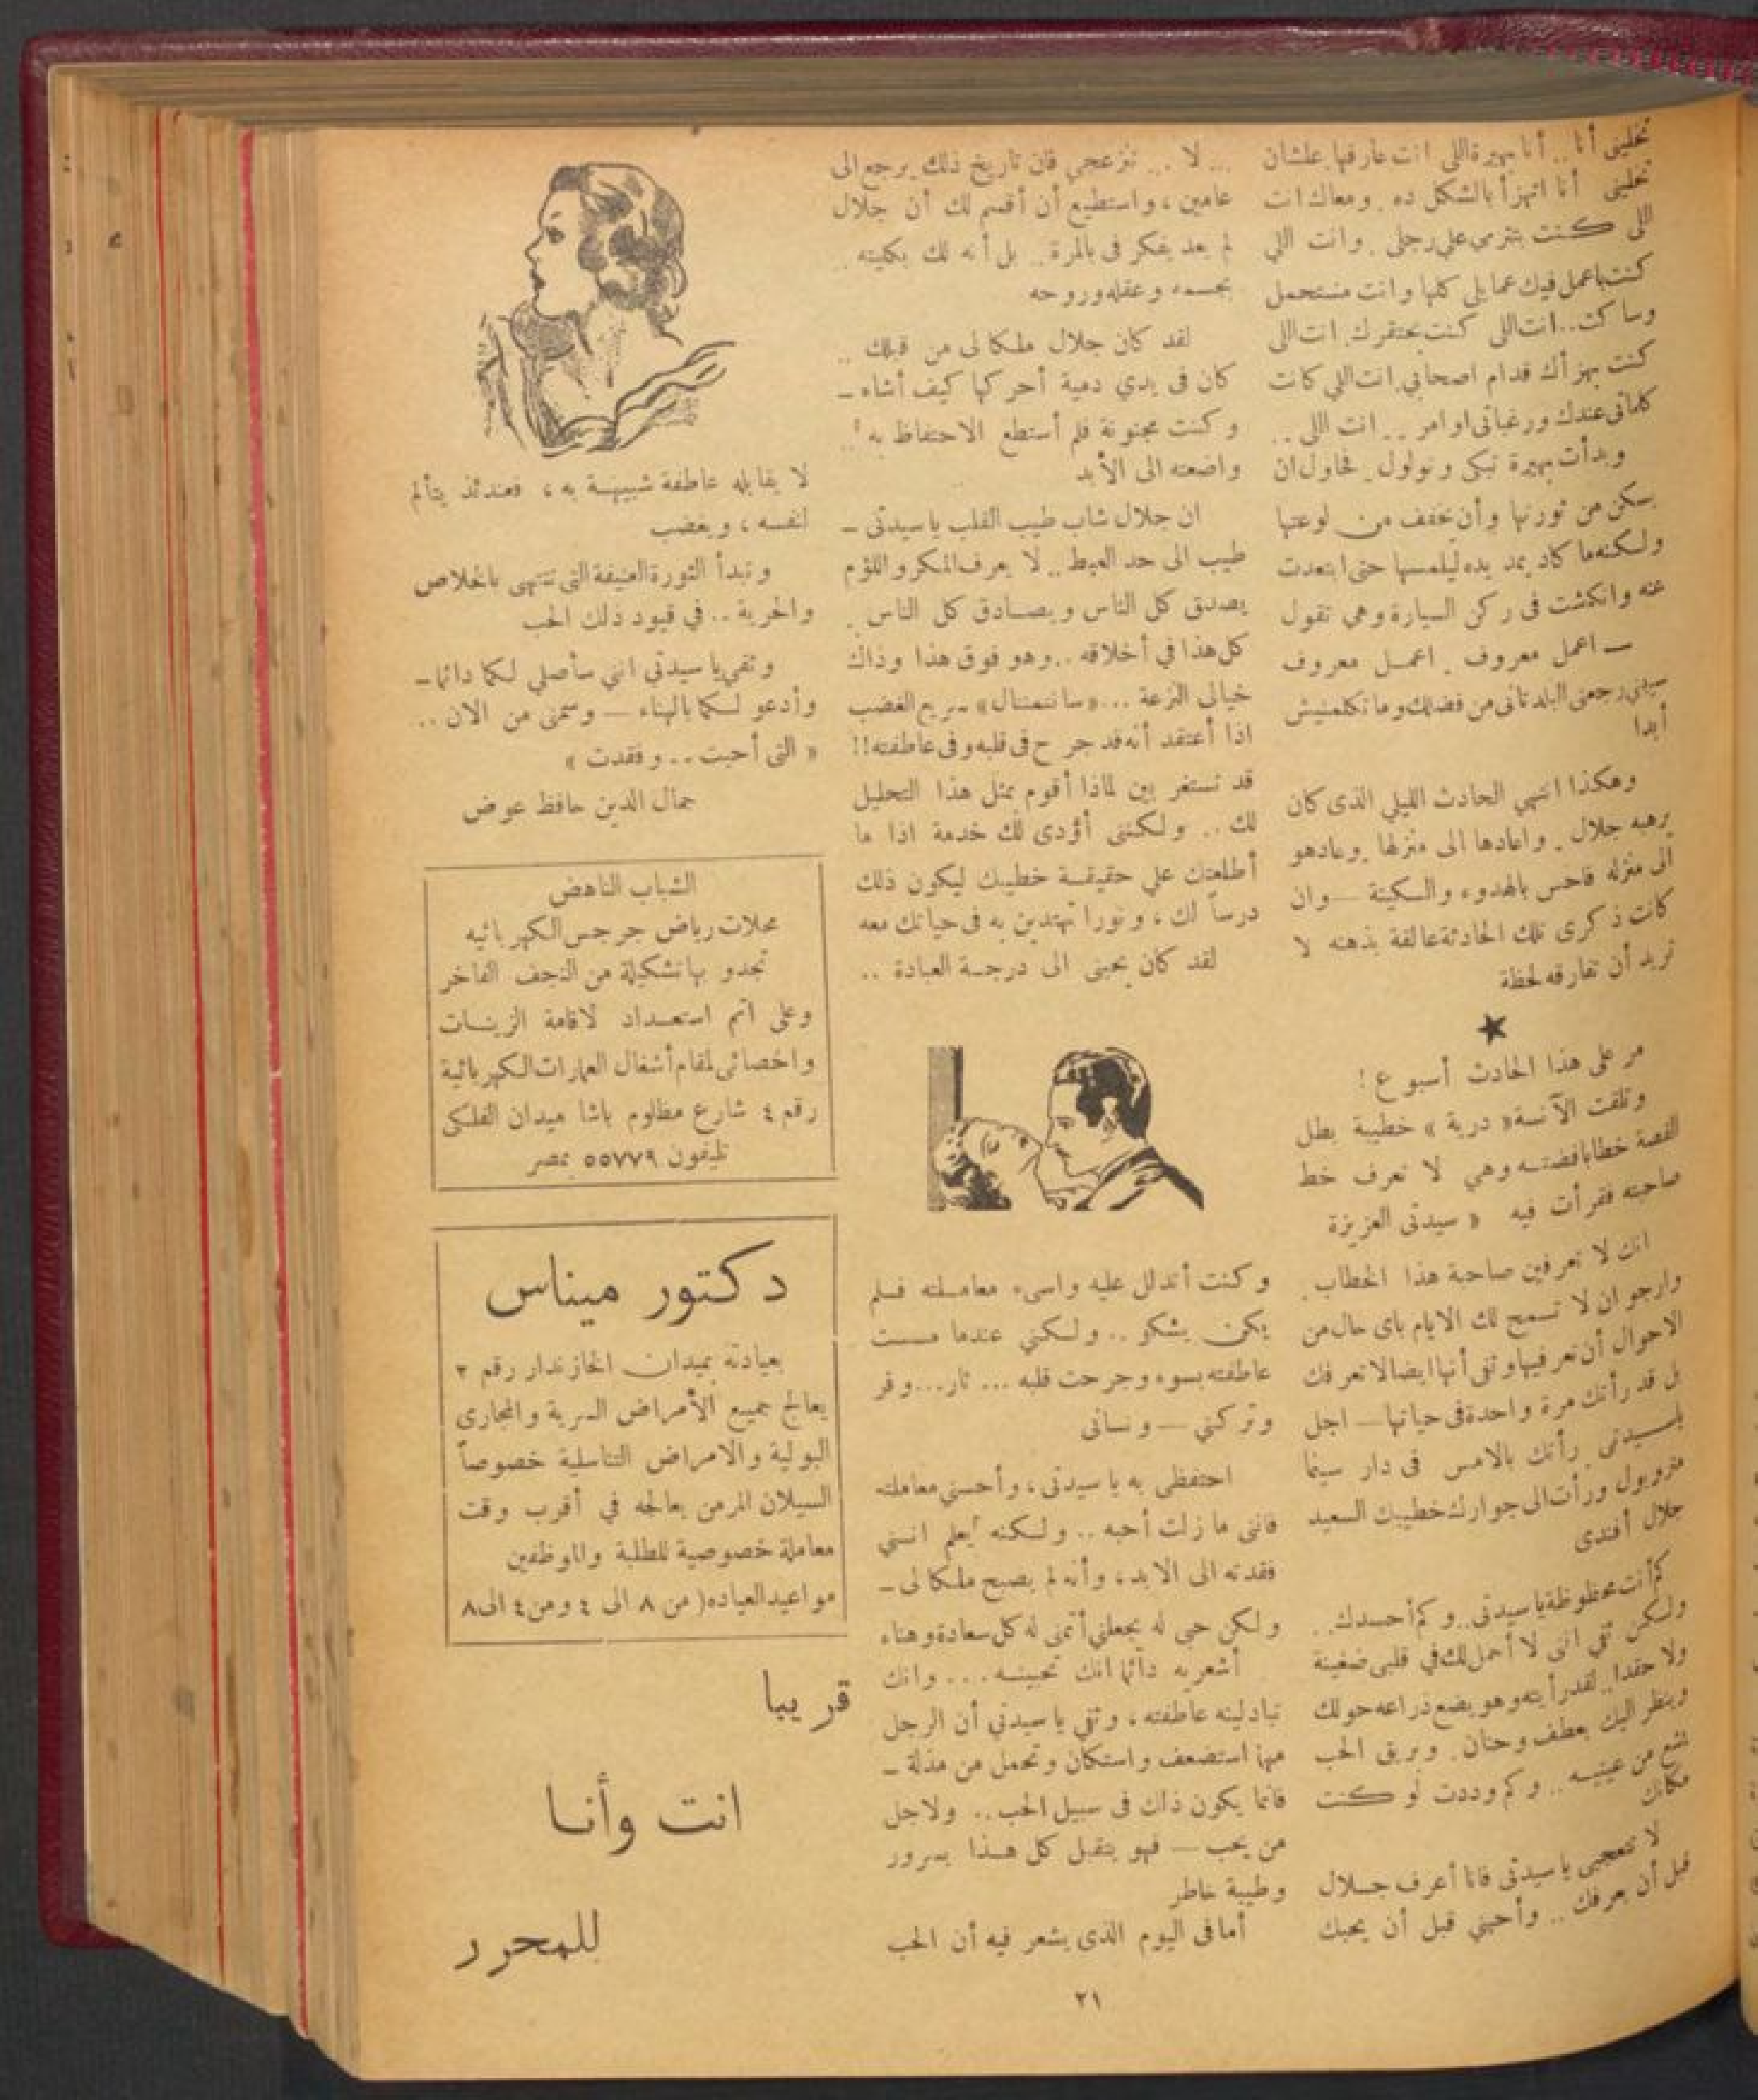 تخليني أنا .. أنا بهيرة اللى انت عارفها علشان
تخليني أنا اتهزأ بالشكل ده . ومعاك انت
اللى كنت بتترمى على رجلى . وانت اللي
كنت باعمل فيك عمايلي كلها وانت مستحمل
وساكت .. انت اللى كنت بحتقرك . انت اللى
كنت بهزأك قدام اصحابي . انت اللى كانت
كلماتى عندك ورغباتى اوامر .. انت اللى ..
وبدأت بهيرة تبكى وتولول . فحاول ان
يسكن من ثورتها وأن يخفف من لوعتها
ولكنه ما كاد يمد يده ليلمسها حتى ابتعدت
عنه وانكمشت فى ركن السيارة وهي تقول
— اعمل معروف . اعمل معروف
سيبني رجعنى البلد تانى من فضلك وما تكلمنيش
أبدا
وهكذا انتهي الحادث الليلي الذى كان
يرهبه جلال . واعادها الى منزلها . وعاد هو
الى منزله فاحس بالهدوء والسكينة — وان
كانت ذكرى تلك الحادثة عالقة بذهنه لا
تريد أن تفارقه لحظة
★
مر على هذا الحادث أسبوع !
وتلقت الآنسة « درية » خطيبة بطل
القصة خطابا فضته وهي لا تعرف خط
صاحبه فقرأت فيه « سيدتى العزيزة
انك لا تعرفين صاحبة هذا الخطاب .
وارجو ان لا تسمح لك الايام باى حال من
الاحوال أن تعرفيها وثقى أنها ايضا لا تعرفك
بل قد رأتك مرة واحدة فى حياتها — اجل
ياسيدتى . رأتك بالامس فى دار سينما
متروبول ورأت الى جوارك خطيبك السعيد
جلال أفندى
كم أنت محظوظة يا سيدتى .. وكم أحسدك .
ولكن ثقي انى لا أحمل لك في قلبى ضغينة
ولا حقدا . لقد رأيته وهو يضع ذراعه حولك
وينظر اليك بعطف وحنان . وبريق الحب
يشع من عينيه .. وكم وددت لو كنت
مكانك
لا تتعجبى يا سيدتى فانا أعرف جلال
قبل أن يعرفك .. وأحبني قبل أن يحبك
... لا .. تنزعجى فان تاريخ ذلك يرجع الى
عامين ، واستطيع أن أقسم لك أن جلال
لم يعد يفكر فى بالمرة .. بل أنه لك بكليته ..
بجسمه وعقله وروحه
لقد كان جلال ملكا لى من قبلك ..
كان فى يدي دمية أحركها كيف أشاء —
وكنت مجنونة فلم أستطع الاحتفاظ به ! ..
واضعته الى الأبد
ان جلال شاب طيب القلب يا سيدتى —
طيب الى حد العبط .. لا يعرف المكر واللؤم
يصدق كل الناس ويصادق كل الناس .
كل هذا في أخلاقه .. وهو فوق هذا وذاك
خيالى النزعة ... «سانتمنتال» سريع الغضب
اذا أعتقد أنه قد جرح فى قلبه وفى عاطفته !!
قد تستغربين لماذا أقوم بمثل هذا التحليل
لك .. ولكننى أؤدى لك خدمة اذا ما
أطلعتك علي حقيقة خطيبك ليكون ذلك
درساً لك ، ونورا تهتدين به فى حياتك معه
لقد كان يحبنى الى درجة العبادة ..
وكنت أتدلل عليه واسىء معاملته فلم
يكن يشكو .. ولكني عندما مسست
عاطفته بسوء وجرحت قلبه ... ثار ... وفر
وتركني — ونسانى
احتفظى به يا سيدتى ، وأحسني معاملته
فاننى ما زلت أحبه .. ولكنه يعلم انسني
فقدته الى الابد ، وأنه لم يصبح ملكا لى —
ولكن حبى له يجعلني أتمنى له كل سعادة وهناء
أشعريه دائما انك تحبينه ... وانك
تبادلينه عاطفته ، وثقي يا سيدتي أن الرجل
مهما استضعف واستكان وتحمل من مذلة —
فانما يكون ذلك فى سبيل الحب .. ولاجل
من يحب — فهو يتقبل كل هذا بسرور
وطيبة خاطر
أما فى اليوم الذى يشعر فيه أن الحب
لا يقابله عاطفة شبيهة به ، فعندئذ يتألم
لنفسه ، ويغضب
وتبدأ الثورة العنيفة التى تنتهى بالخلاص
والحرية .. في قيود ذلك الحب
وثقي يا سيدتي انني سأصلي لكما دائما —
وأدعو لكما بالهناء — وسمى من الان ..
« التى أحبت .. وفقدت »
جمال الدين حافظ عوض
الشباب الناهض
محلات رياض جرجس الكهربائيه
تجدو بها تشكيلة من النجف الفاخر
وعلى اتم استعداد لاقامة الزينات
واخصائى لمقام أشغال العمارات الكهربائية
رقم ٤ شارع مظلوم باشا ميدان الفلكى
تليفون ٥٥٧٧٩ بمصر
دكتور ميناس
بعيادته بميدان الخازندار رقم ٢
يعالج جميع الأمراض السرية والمجارى
البولية والامراض التناسلية خصوصاً
السيلان المزمن يعالجه في أقرب وقت
معاملة خصوصية للطلبة والموظفين
مواعيد العياده ( من ٨ الى ٤ ومن ٤ الى ٨
قريبا
انت وأنا
للمحرر
٢١